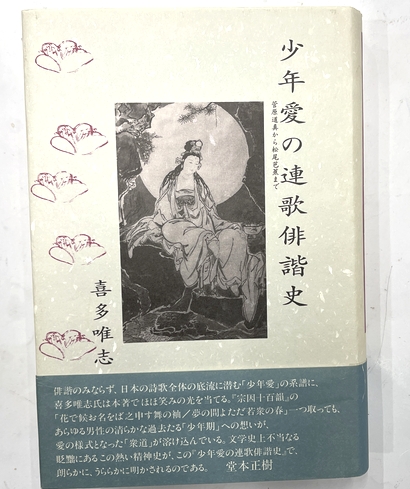 少年愛の連歌俳諧史
菅原道真から松尾芭蕉まで
喜多唯志
俳諧のみならず、日本の詩歌全体の底流に潜む「少年愛」の系譜に、
喜多唯志氏は本著でほほ笑みの光を当てる。『宗因十百韻』の
「花で候お名をば之申す舞の袖／夢の間よただ若衆の春」一つ取っても、
あらゆる男性の清らかな過去たる「少年期」への想いが、
愛の様式となった「衆道」が溶け込んでいる。文学史上不当なる
貶黜にあるこの熱い精神史が、この『少年愛の連歌俳諧史』で、
朗らかに、うららかに明かされるのである。 堂本正樹